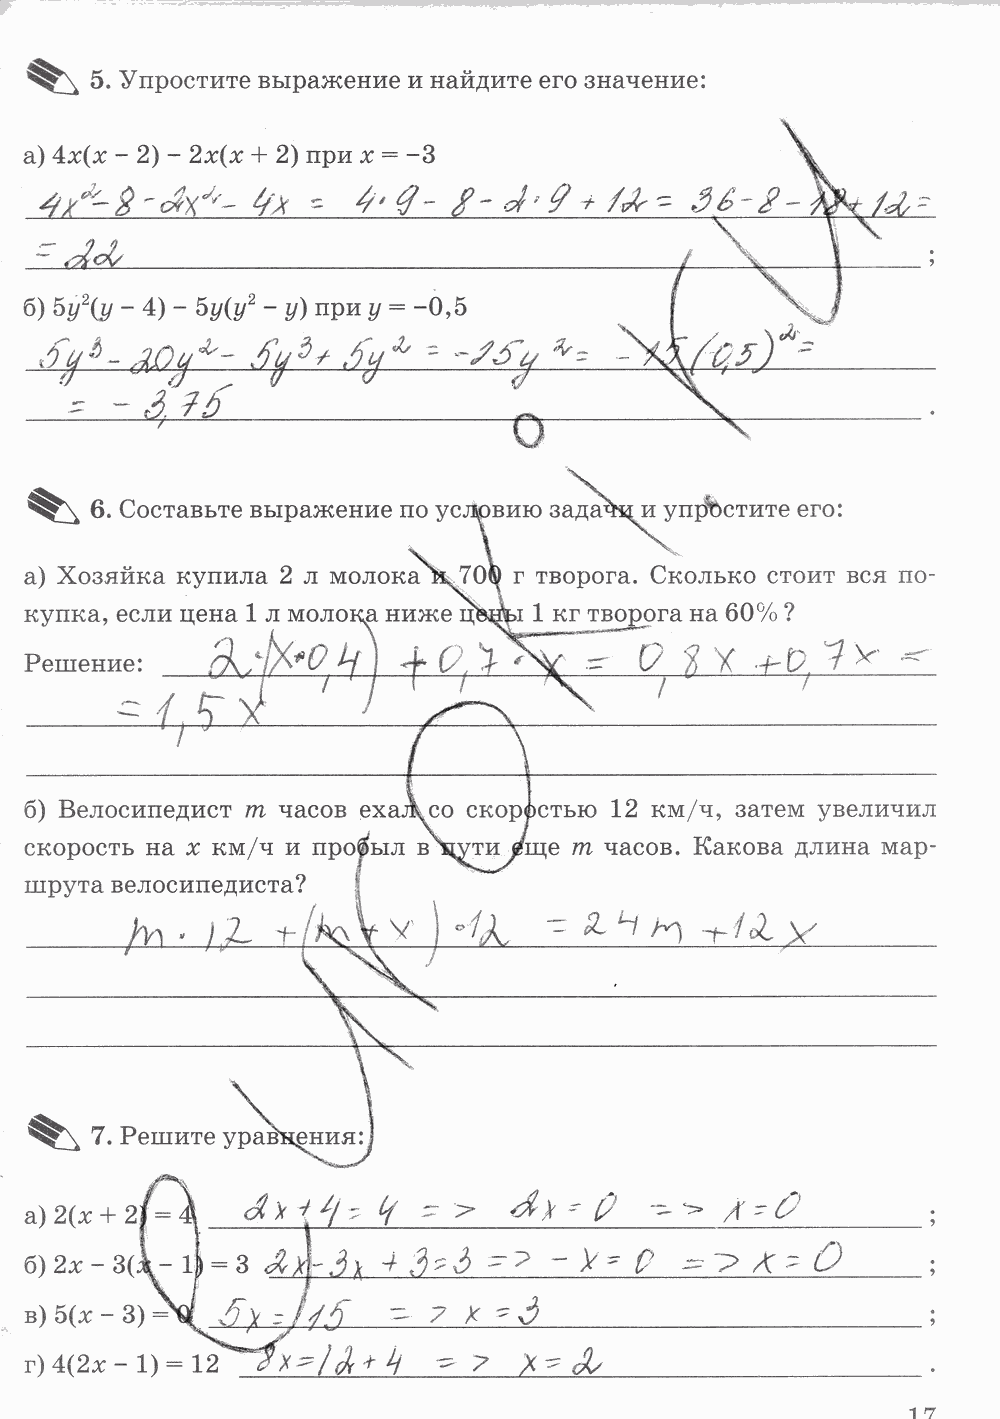 5. Упростите выражение и найдите его значение:
а) 4x(x − 2) − 2x(x + 2) при x = −3
4x² − 8 − 2x² − 4x = 4·9 − 8 − 2·9 + 12 = 36 − 8 − 18 + 12 =
= 22 ;
б) 5y²(y − 4) − 5y(y² − y) при y = −0,5
5y³ − 20y² − 5y³ + 5y² = −15y² = −15(0,5)² =
= −3,75 .
6. Составьте выражение по условию задачи и упростите его:
а) Хозяйка купила 2 л молока и 700 г творога. Сколько стоит вся по-
купка, если цена 1 л молока ниже цены 1 кг творога на 60%?
Решение: 2·(x·0,4) + 0,7·x = 0,8x + 0,7x =
= 1,5x
б) Велосипедист m часов ехал со скоростью 12 км/ч, затем увеличил
скорость на x км/ч и пробыл в пути еще m часов. Какова длина мар-
шрута велосипедиста?
m·12 + (m + x)·12 = 24m + 12x
7. Решите уравнения:
а) 2(x + 2) = 4 2x + 4 = 4 => 2x = 0 => x = 0 ;
б) 2x − 3(x − 1) = 3 2x − 3x + 3 = 3 => −x = 0 => x = 0 ;
в) 5(x − 3) = 0 5x = 15 => x = 3 ;
г) 4(2x − 1) = 12 8x = 12 + 4 => x = 2 .
17
uroki.ru